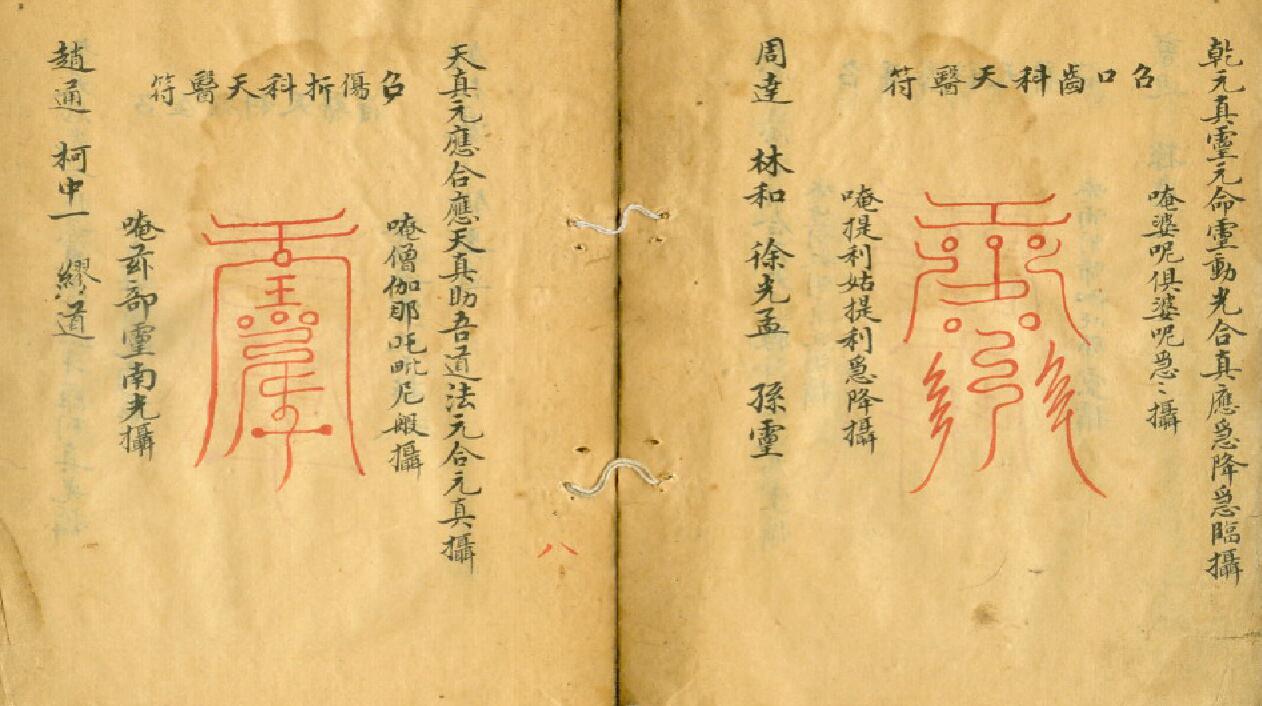 乾元真靈元命靈動光合真應急降急臨攝
唵婆呢俱婆呢急〻攝
召口齒科天醫符
唵提利姑提利急降攝
周達 林和 徐光孟 孫靈
天真元應合應天真助吾道法元合元真攝
唵僧伽耶吒毗尼般攝
召傷折科天醫符
部靈南光攝
趙通 柯中一 繆道
八